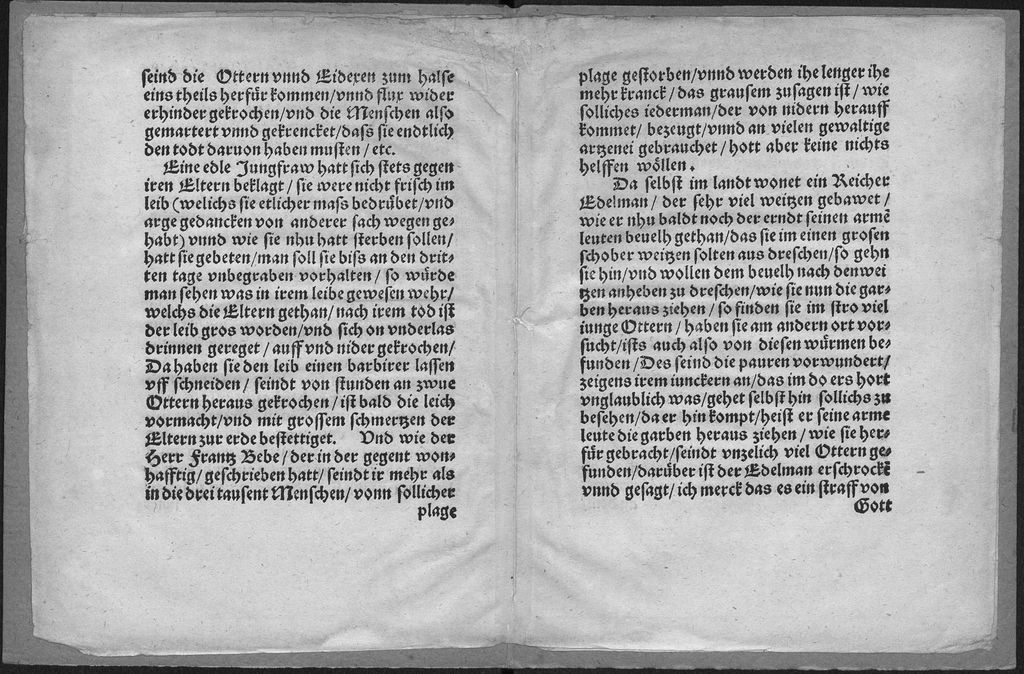 seind die Ottern vnnd Eideren zum halse
eins theils herfür kommen/vnnd flux wider
erhinder gekrochen/vnd die Menschen also
gemartert vnnd gekrencket/dass sie endtlich
den todt daruon haben musten / etc.
Eine edle Jungfraw hatt sich stets gegen
iren Eltern beklagt / sie were nicht frisch im
leib (welichs sie etlicher mass bedrübet/vnd
arge gedancken von anderer sach wegen ge⸗
habt) vnnd wie sie nhu hatt sterben sollen/
hatt sie gebeten/man soll sie biss an den drit⸗
ten tage vnbegraben vorhalten / so würde
man sehen was in irem leibe gewesen wehr/
welchs die Eltern gethan/nach irem tod ist
der leib gros worden/vnd sich on vnderlas
drinnen gereget / auff vnd nider gekrochen/
Da haben sie den leib einen barbirer lassen
vff schneiden / seindt von stunden an zwue
Ottern heraus gekrochen / ist bald die leich
vormacht/vnd mit grossem schmertzen der
Eltern zur erde bestettiget. Vnd wie der
Herr Frantz Bebe/der in der gegent won⸗
hafftig/geschrieben hatt/seindt ir mehr als
in die drei tausent Menschen/vonn sollicher
plage
plage gestorben/vnnd werden ihe lenger ihe
mehr kranck/das grausem zusagen ist/wie
solliches iederman/der von nidern herauff
kommet/ bezeugt/vnnd an vielen gewaltige
artzenei gebrauchet/hott aber keine nichts
helffen wöllen.
Da selbst im landt wonet ein Reicher
Edelman / der sehr viel weitzen gebawet /
wie er nhu baldt noch der erndt seinen armē
leuten beuelh gethan/das sie im einen grosen
schober weitzen solten aus dreschen/so gehn
sie hin/vnd wollen dem beuelh nach den wei
tzen anheben zu dreschen/wie sie nun die gar⸗
ben heraus ziehen / so finden sie im stro viel
iunge Ottern / haben sie am andern ort vor⸗
sucht/ists auch also von diesen würmen be⸗
funden/Des seind die pauren vorwundert/
zeigens irem iunckern an/das im do ers hort
vnglaublich was/gehet selbst hin sollichs zu
besehen/da er hin kompt/heist er seine arme
leute die garben heraus ziehen / wie sie her⸗
für gebracht/seindt vnzelich viel Ottern ge⸗
funden/darüber ist der Edelman erschrockē
vnnd gesagt/ich merck das es ein straff von
Gott